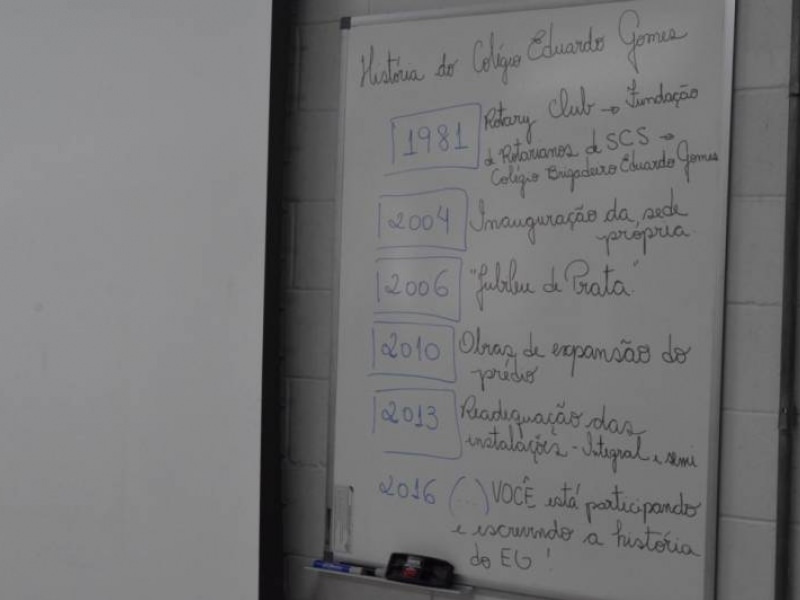 História do Colégio Eduardo Gomes
1981 Rotary Club → Fundação
de Rotarianos de SCS →
Colégio Brigadeiro Eduardo Gomes
2004 Inauguração da sede
própria
2006 "Jubileu de Prata"
2010 Obras de expansão do
prédio
2013 Readequação das
instalações - Integral e semi
2016 (...) VOCÊ está participando
e escrevendo a história
do EG!